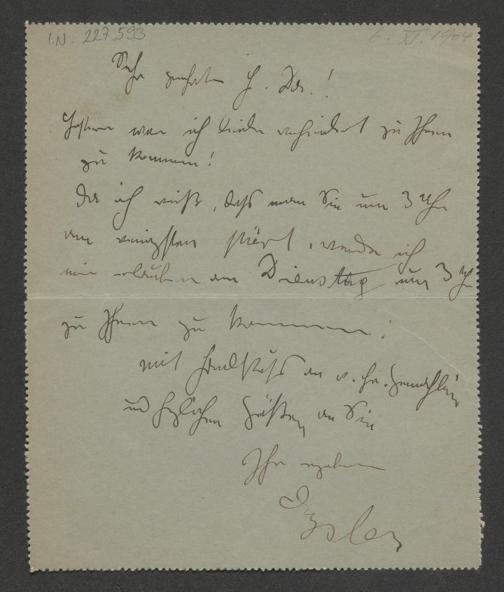 I.N. 227.593
6. XI. 1904
Sehr geehrter H. Dr.!
Gestern war ich leider verhindert zu Ihnen
zu kommen!
Da ich weiß, daß man Sie um 3 Uhr
am wenigsten stört, werde ich
mir erlauben am Dienstag um 3 Uhr
zu Ihnen zu kommen!
mit Handkuss an v. Fr. Gemahlin
und herzlichen Grüßen an Sie
Ihr ergebener